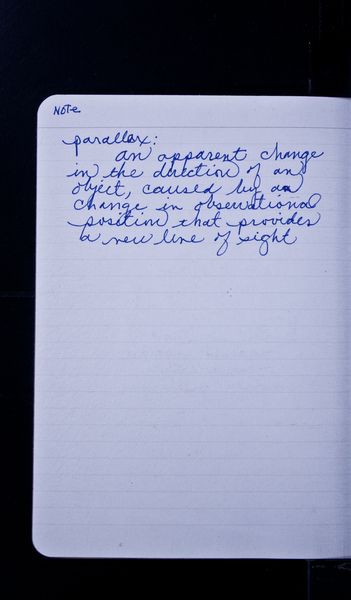 NOTE
parallax:
an apparent change
in the direction of an
object, caused by a
change in observational
position that provides
a new line of sight